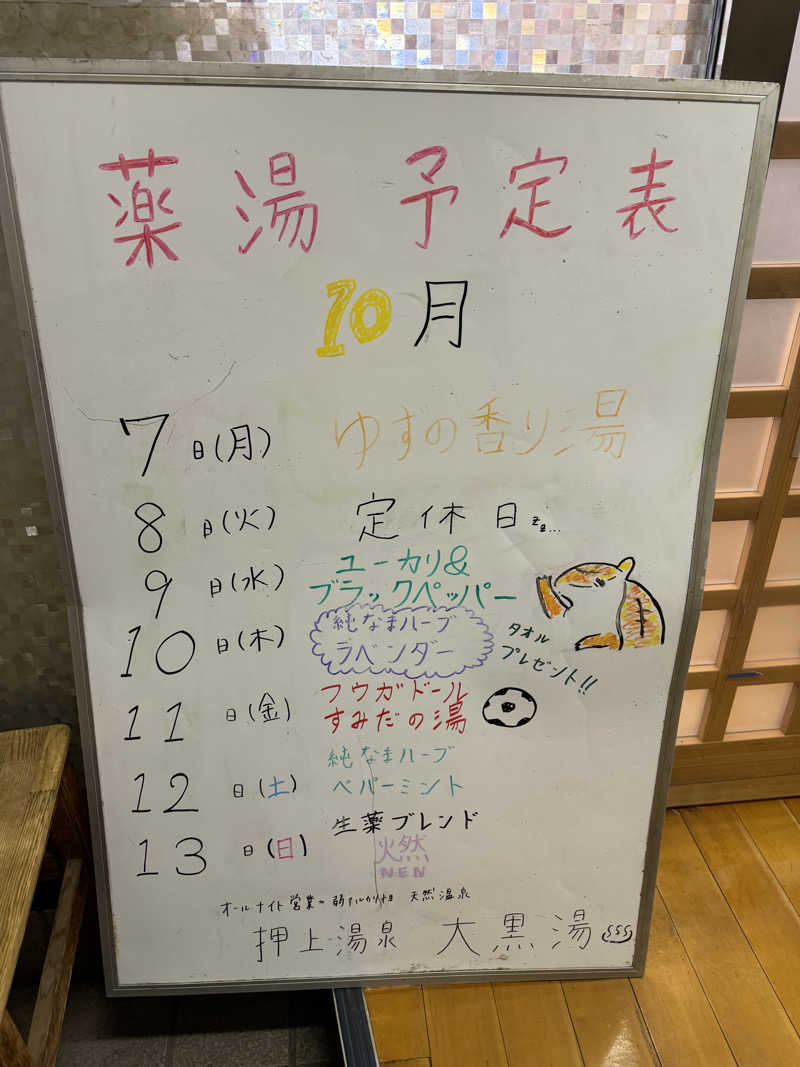 薬湯予定表
10月
7日(月) ゆずの香り湯
8日(火) 定休日 zz...
9日(水) ユーカリ&
ブラックペッパー
10日(木) 純なまハーブ
ラベンダー
タオル
プレゼント!!
11日(金) フウガドール
すみだの湯
12日(土) 純なまハーブ
ペパーミント
13日(日) 生薬ブレンド
燃
NEN
オールナイト営業の弱アルカリ性 天然温泉
押上温泉 大黒湯